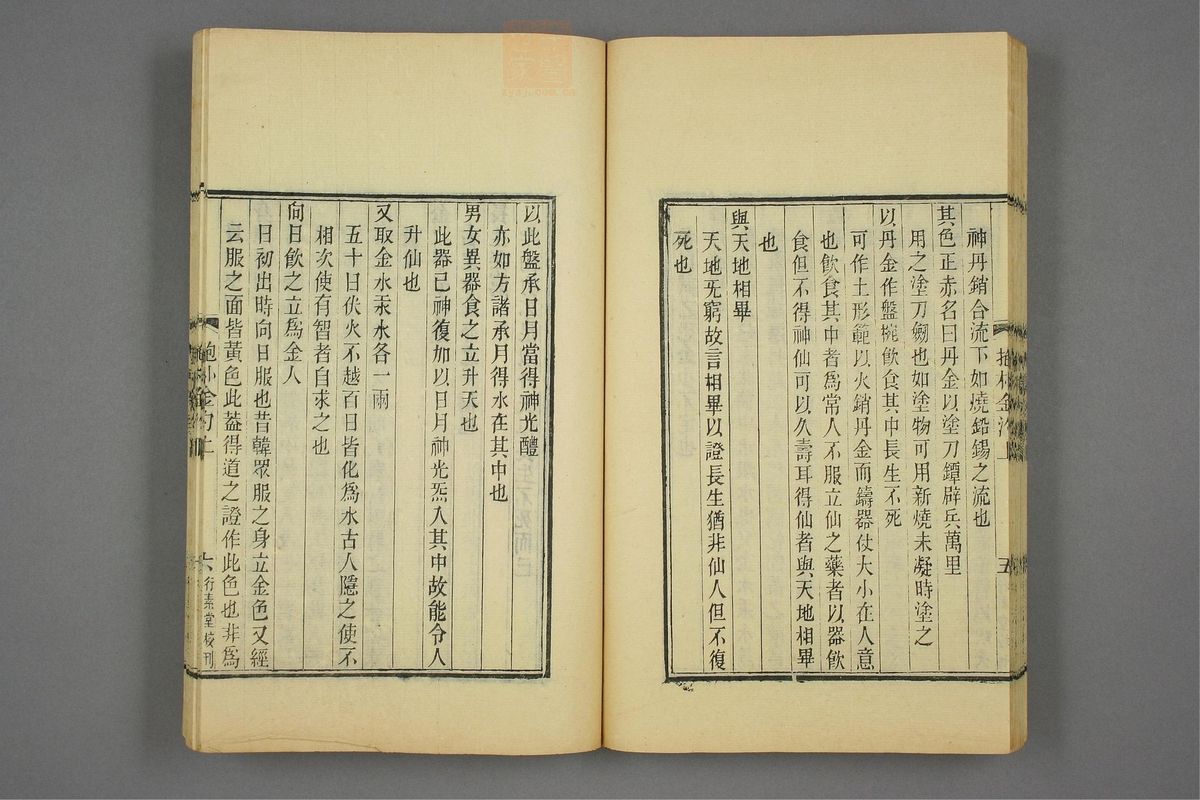 神丹銷合流下如燒鉛錫之流也
其色正赤名曰丹金以塗刀鐔辟兵萬里
用之塗刀劒也如塗物可用新燒未凝時塗之
以丹金作盤椀飮食其中長生不死
可作土形範以火銷丹金而鑄器仗大小在人意
也飮食其中者爲常人不服立仙之藥者以器飮
食但不得神仙可以久壽耳得仙者與天地相畢
也
與天地相畢
天地旡窮故言相畢以證長生猶非仙人但不復
死也
五
以此盤承日月當得神光醴
亦如方諸承月得水在其中也
男女異器食之立升天也
此器已神復加以日月神光炁入其中故能令人
升仙也
又取金水汞水各一兩
五十日伏火不越百日皆化爲水古人隱之使不
相次使有智者自求之也
向日飮之立爲金人
日初出時向日服也昔韓眾服之身立金色又經
云服之面皆黃色此葢得道之證作此色也非爲
六
行素堂校刊